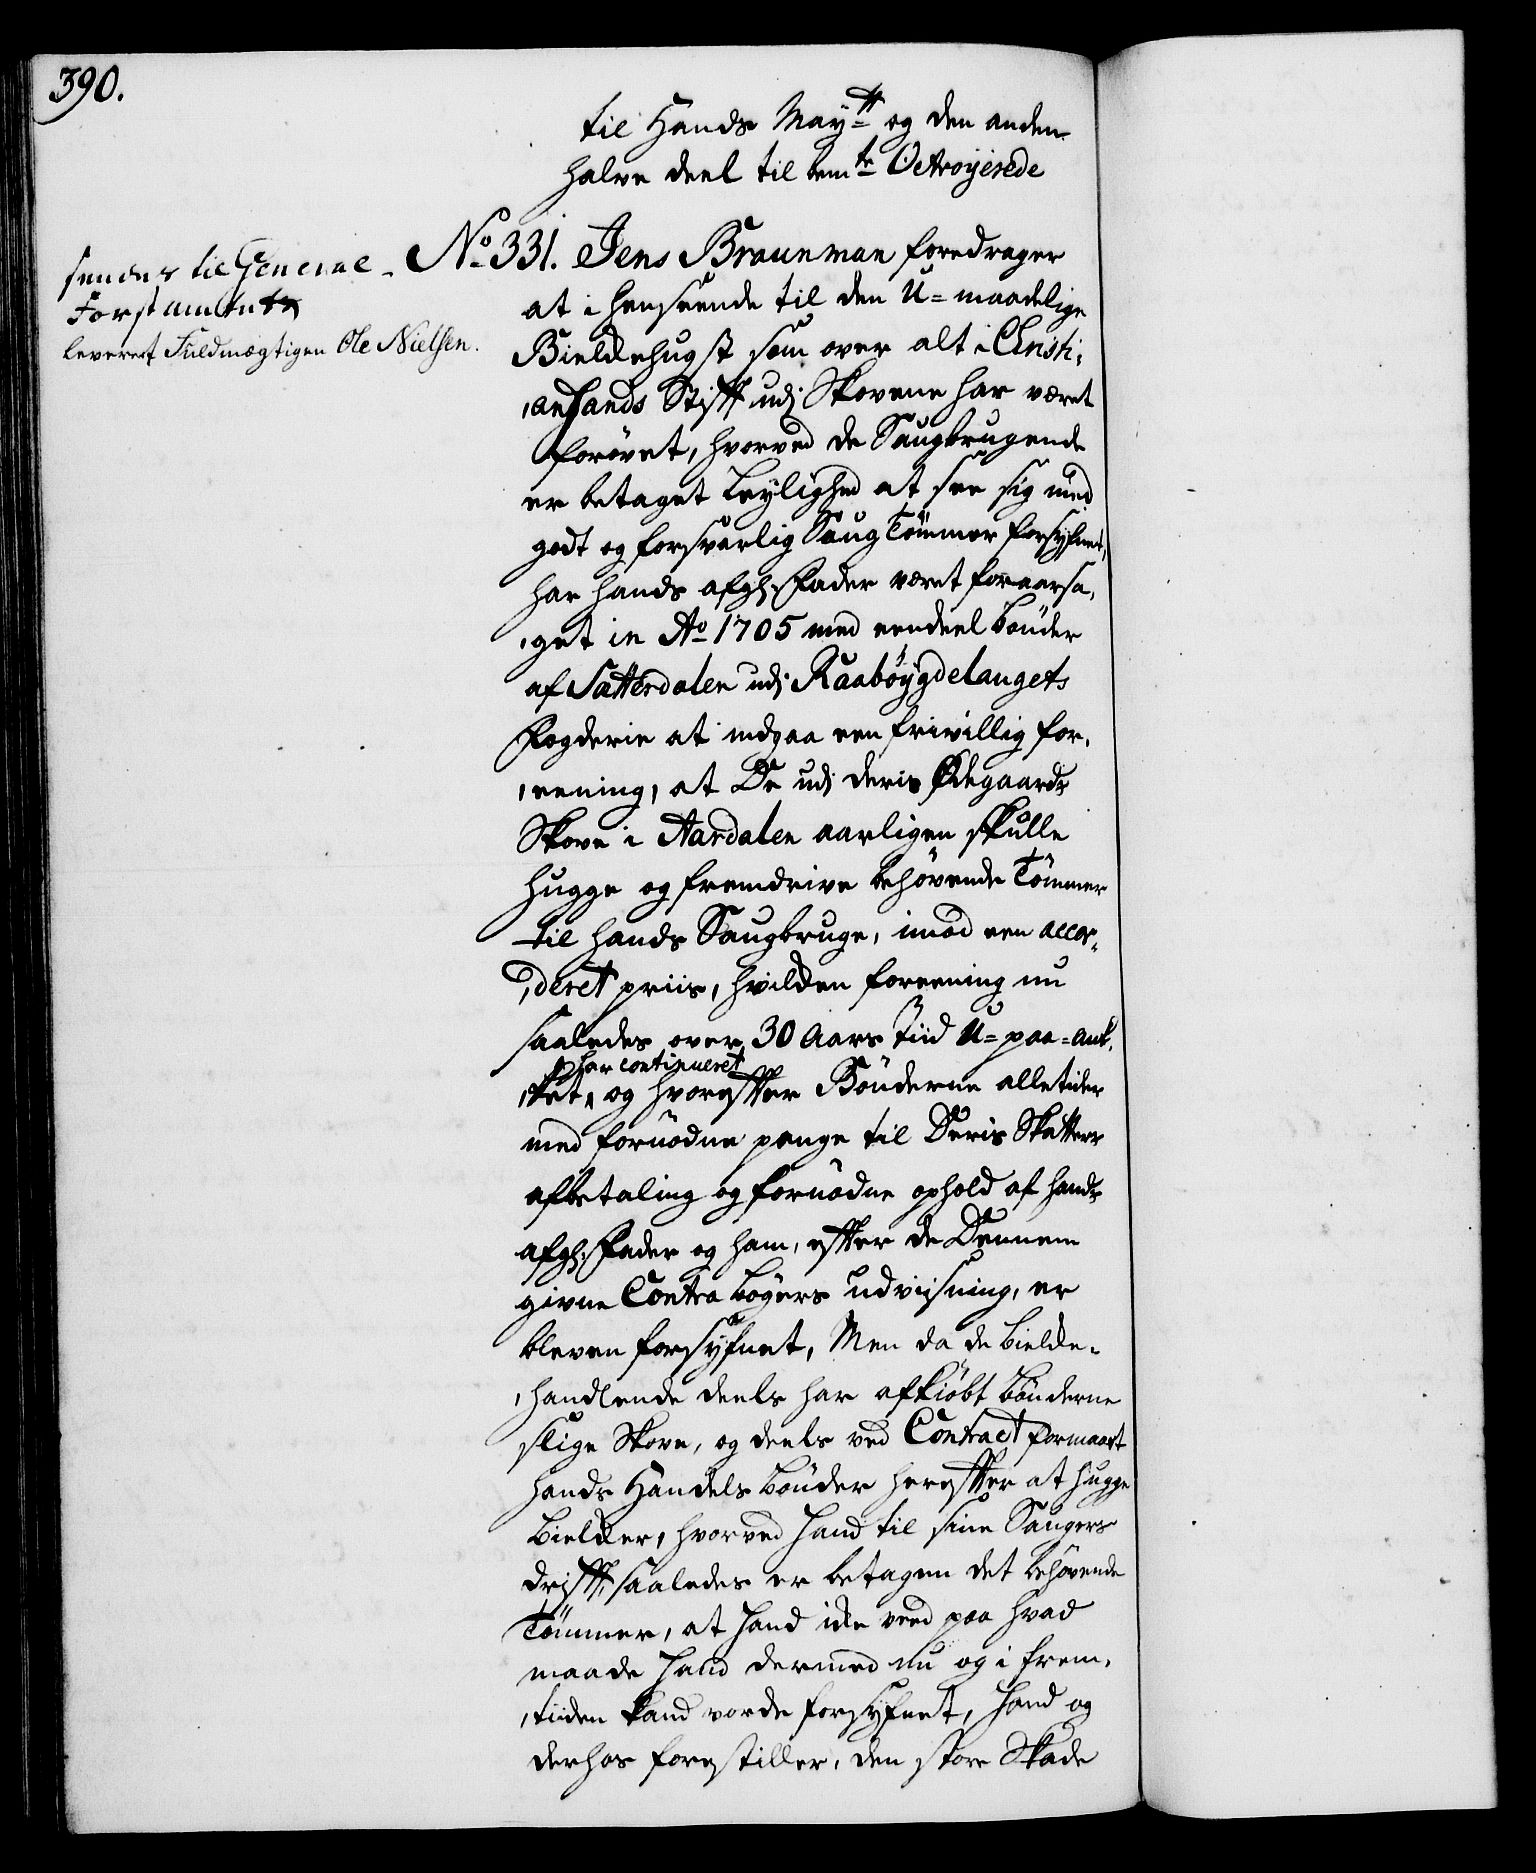 390.
til Hands May.tt og den anden
halve deel til bem.te Octroyerede
sendes til General-
Forst amtet
leverert Fuldmægtigen Ole Nielsen.
No 331. Jens Braunman foredrager
at i henseende til den U=maadelige
Bielkehugst som over alt i Christi,
,ansands Stifft udj Skovene har været
forövet, hvorved de Saugbrugende
er betaget Leylighed at see sig med
godt og forsvarlig Saug Tömmer forsÿfnet,
har hands afgl: Fader været foraarsa,
,get in Ao 1705 med eendeel bönder
af Sætterdalen udj Raabÿgdelaugets
Fogderie at indgaa een frivillig for,
,eening, at De udj deris Ødegaards
Skove i Aardalen aarligen skulle
hugge og fremdrive behövende Tömmer
til hands Saugbruge, imod een accor,
,deret priis, hvilken foreening nu
saaledes over 30 Aars Tiid U=paa=ank,
har continueret
,ket, og hvorefter Bönderne alletider
med fornödne penge til Deris Skatters
afbetaling og fornödne ophold af hands
afgl: Fader og ham, efter de Dennem
givne Contra bögers udviisning, er
bleven forsÿfnet, Men da de bielke-
,handlende deels har afkiöbt bönderne
slige Skove, og deels ved Contract formaaet
hands Handels bönder herefter at hugge
bielker, hvorved hand til sine Saugers
drifft, saaledes er betagen det behövende
Tömmer, at hand icke veed paa hvad
maade hand dermed nu og i frem,
,tiiden kand vorde forsÿfnet, hand og
derhos forestiller, den store Skade